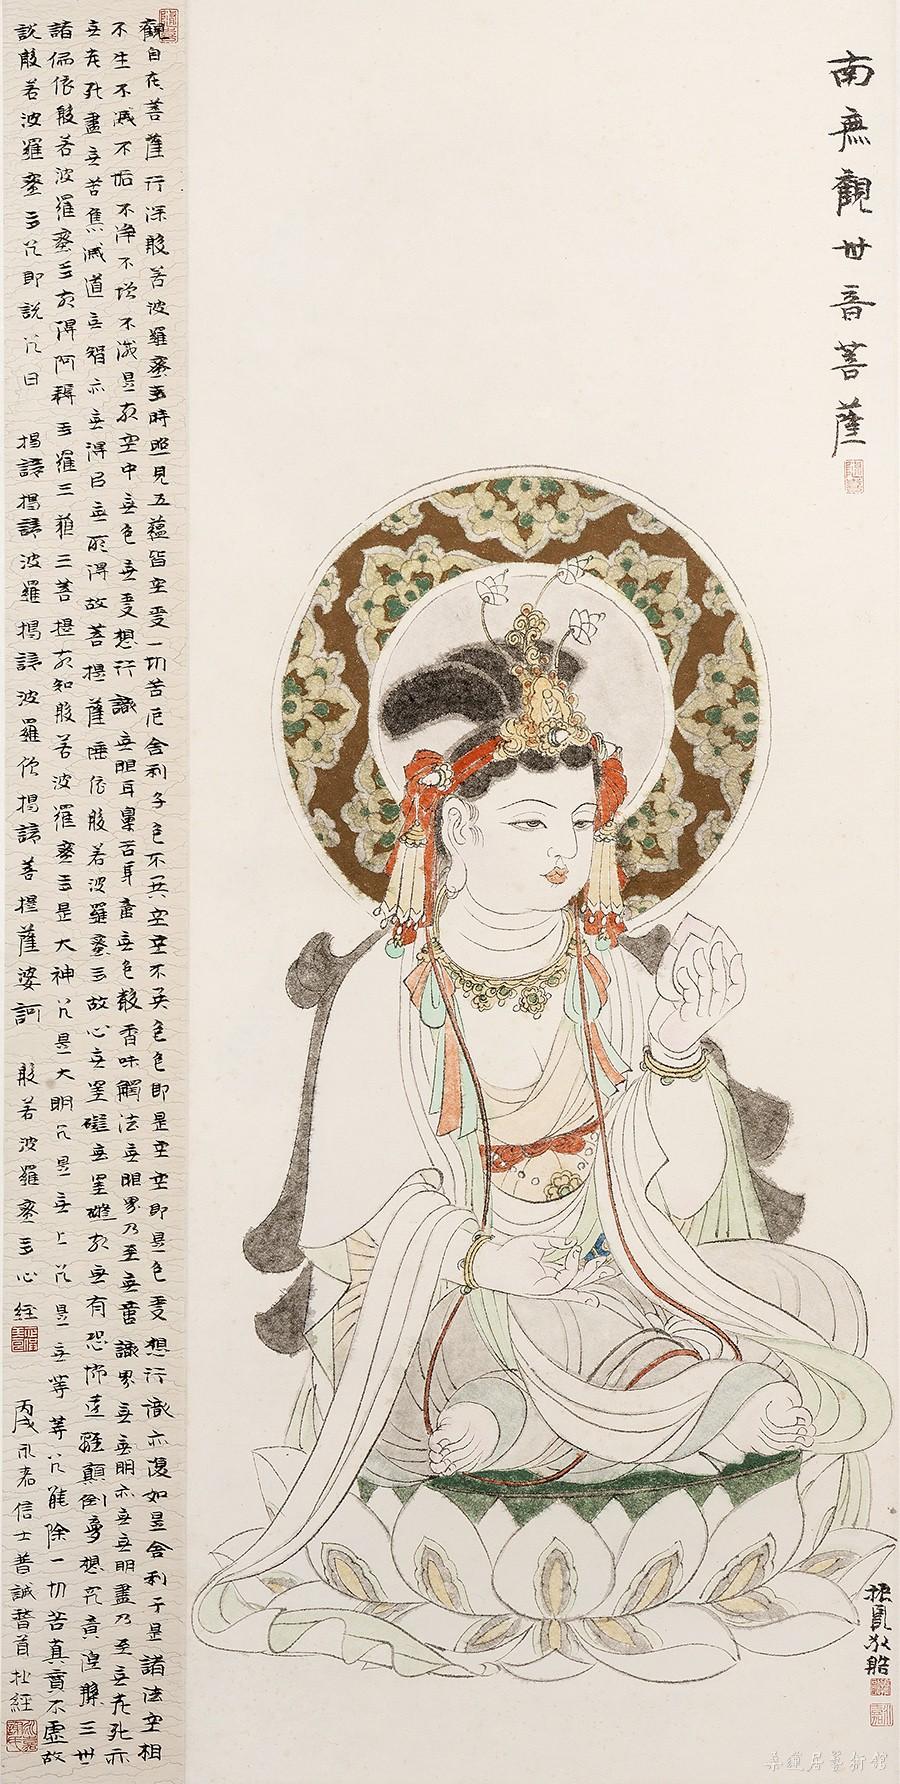 南無觀世音菩薩
觀自在菩薩行深般若波羅蜜多時照見五蘊皆空度一切苦厄舍利子色不異空空不異色色即是空空即是色受想行識亦復如是舍利子是諸法空相
不生不滅不垢不淨不增不減是故空中無色無受想行識無眼耳鼻舌身意無色聲香味觸法無眼界乃至無意識界無無明亦無無明盡乃至無老死亦
無老死盡無苦集滅道無智亦無得以無所得故菩提薩埵依般若波羅蜜多故心無罣礙無罣礙故無有恐怖遠離顛倒夢想究竟涅槃三世
諸佛依般若波羅蜜多故得阿耨多羅三藐三菩提故知般若波羅蜜多是大神咒是大明咒是無上咒是無等等咒能除一切苦真實不虛故
說般若波羅蜜多咒即說咒曰 揭諦揭諦波羅揭諦波羅僧揭諦菩提薩婆訶 般若波羅蜜多心經 丙戌 信士普誠